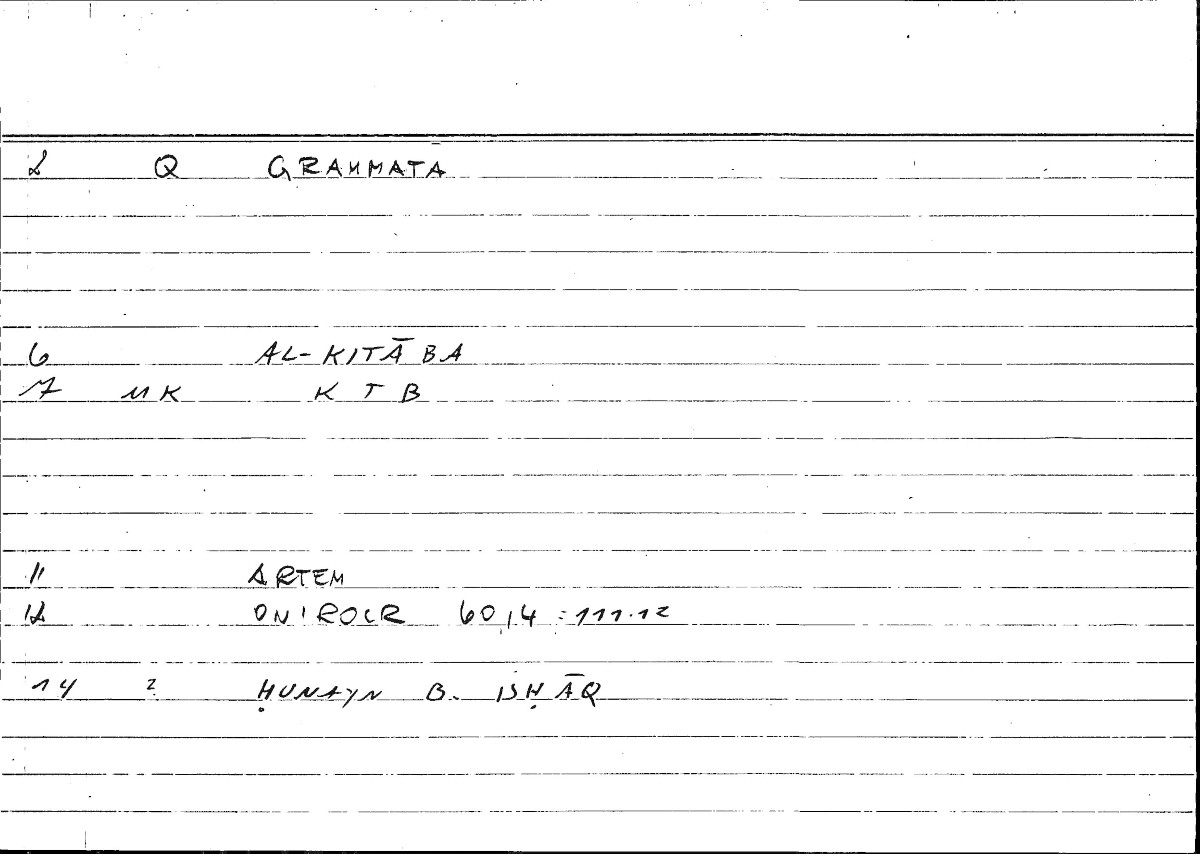 2 Q GRAMMATA
6 AL-KITĀBA
7 MK K T B
11 ARTEM
12 ONIROCR 60,4 : 111.12
14 2 ḤUNAYN B. ISḤĀQ